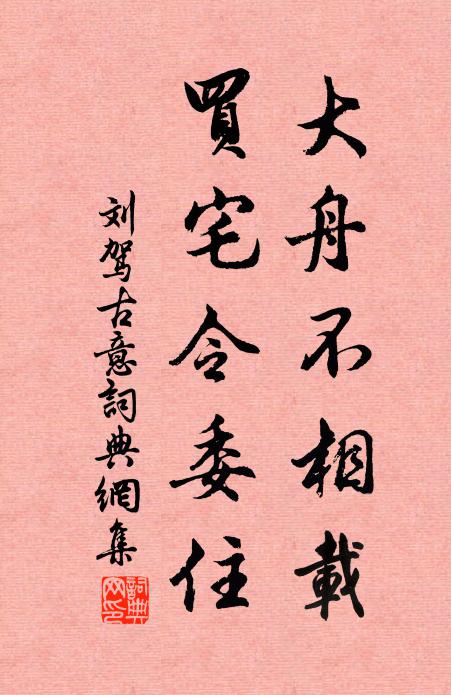 大舟不相載
買宅令委住
刘驾古意詞典網集
詞典网印